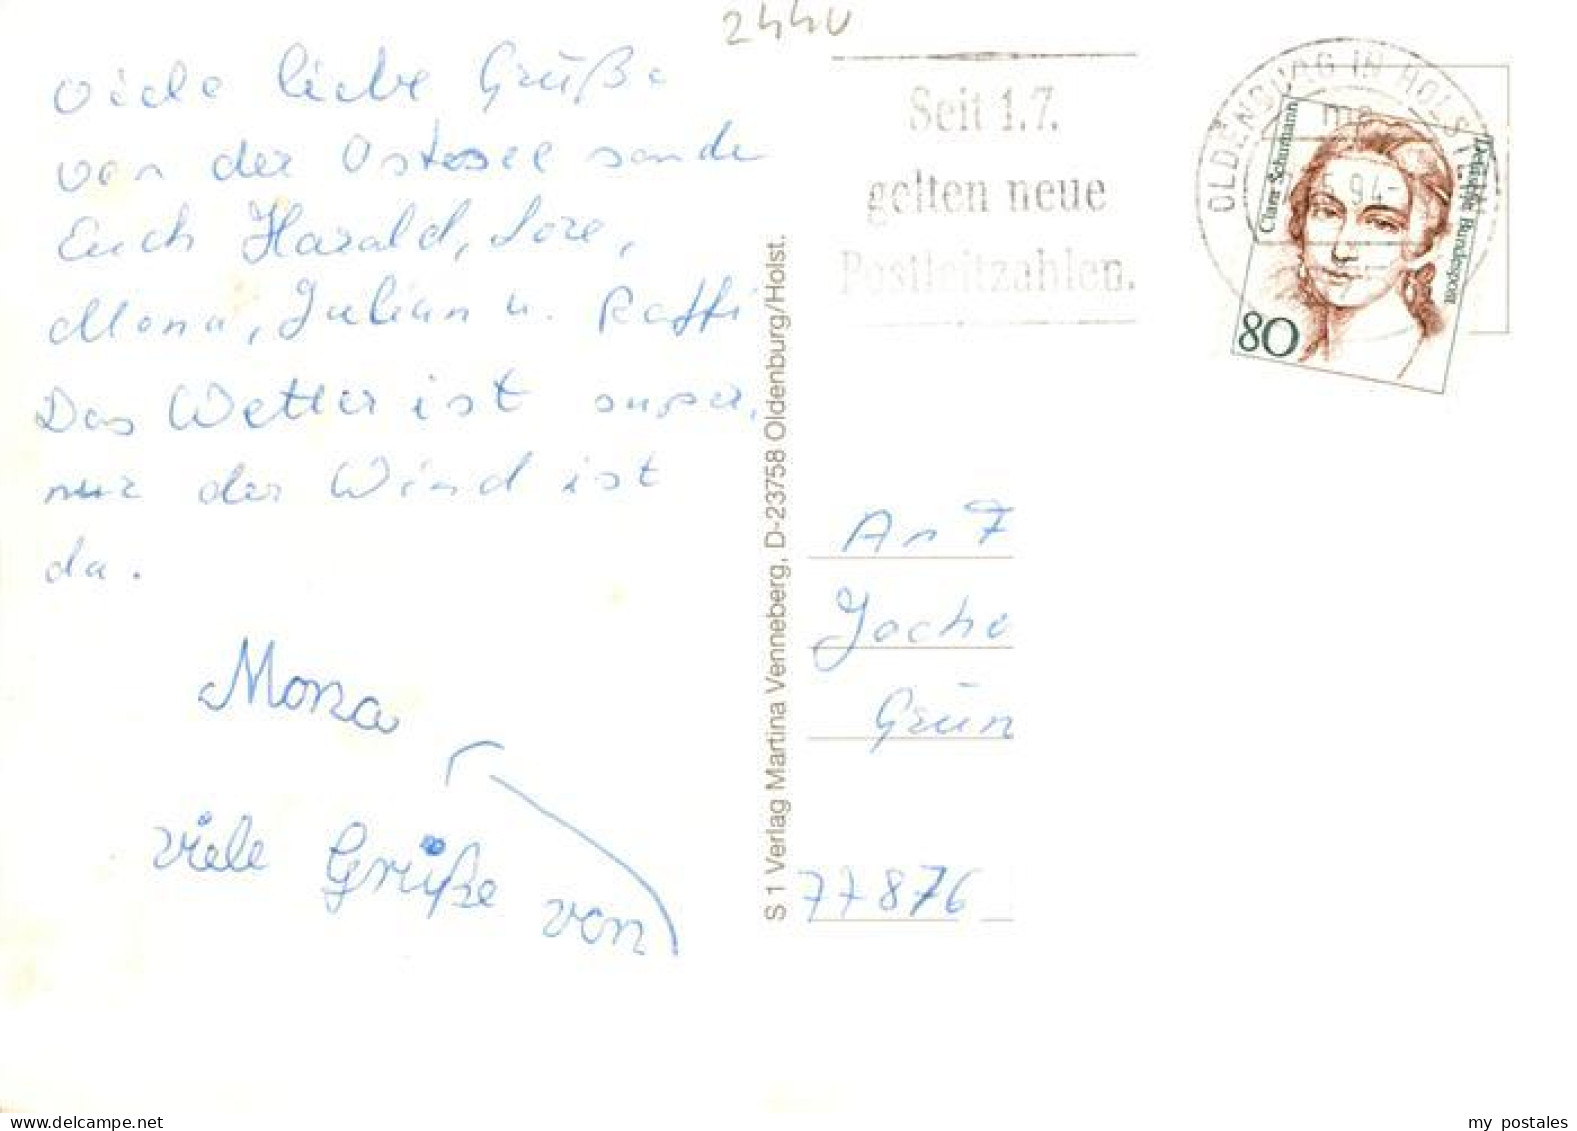 2440
Viele liebe Grüße
von der Ostesee sende
Euch Harald, Lore,
Mona, Julian u. Raffi
Das Wetter ist super,
nur der Wind ist
da.
Mona
viele Grüße von
S 1 Verlag Martina Venneberg, D-23758 Oldenburg/Holst.
Seit 1.7.
gelten neue
Postleitzahlen.
OLDENBURG IN HOLSTEIN
mc
94-
Clara Schumann
Deutsche Bundespost
80
An F
Joche
Grün
77876
my postales